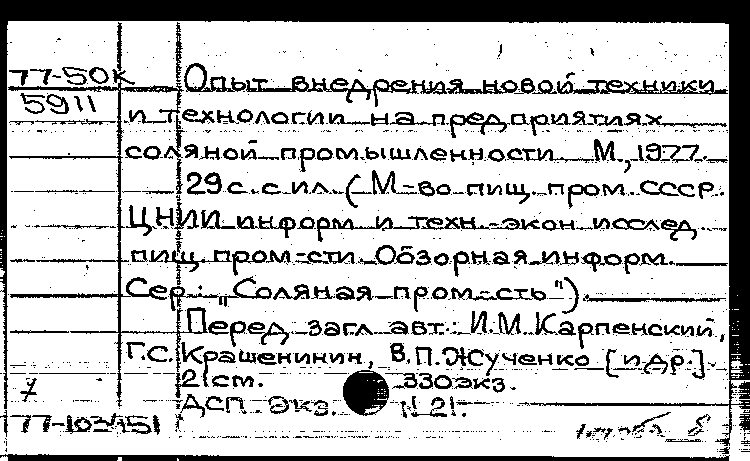 77-50К Опыт внедрения новой техники
5911 и технологии на предприятиях
соляной промышленности М., 1977.
29 с. с ил. (М-во пищ. пром. СССР.
ЦНИИ информ и техн.-экон исслед
пищ. пром-сти. Обзорная информ.
Сер.: „Соляная пром-сть").
Перед загл авт.: И.М. Карпенский,
Г.С. Крашенинин, В.П. Жученко [и др.].
21 см. 330 экз.
ДСП. Экз. N 21.
77-103451